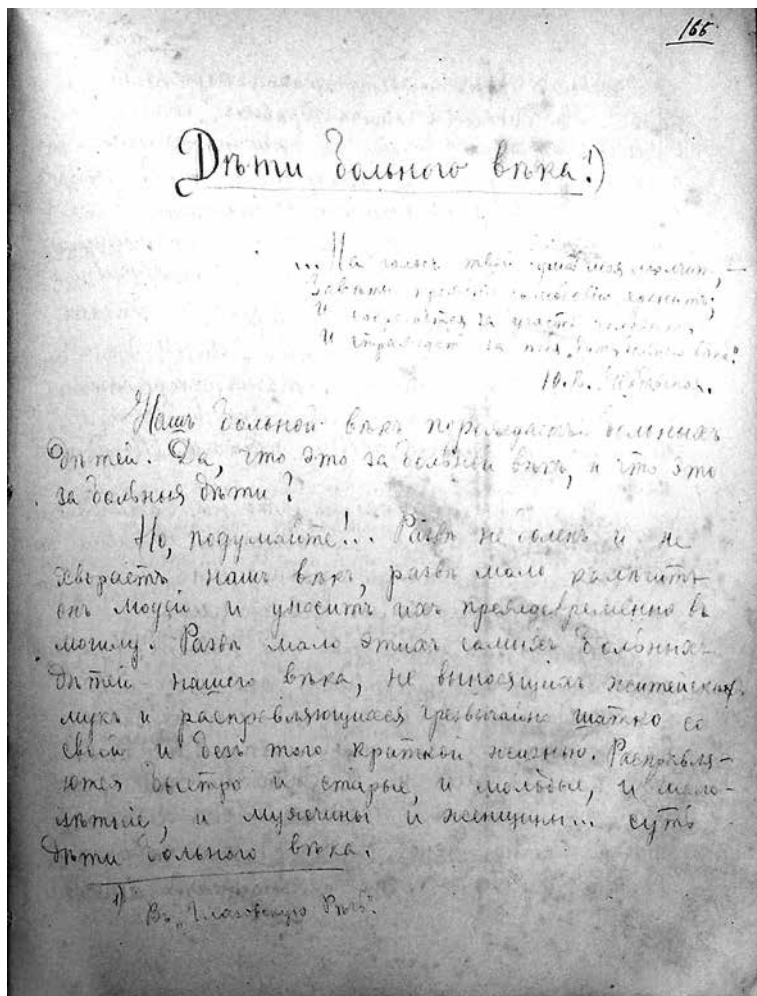 166
Дѣти больного вѣка!¹)
...На голосъ твой душа моя молчитъ,
И за тебя
Ю. В.
Нашъ больной вѣкъ порождаетъ больныхъ
дѣтей. Да, что это за больной вѣкъ, и что это
за больныя дѣти?
Но, подумайте!.. Развѣ не боленъ и не
хвораетъ нашъ вѣкъ, развѣ мало калѣчитъ
онъ людей и уноситъ ихъ преждевременно въ
могилу. Развѣ мало этихъ самыхъ больныхъ
дѣтей нашего вѣка, не выносящихъ житейскихъ
мукъ и расправляющихся чрезвычайно шатко со
своей и безъ того краткой жизнью. Расправля-
ются быстро и старые, и молодые, и мало-
лѣтные, и мужчины и женщины... суть
дѣти больного вѣка.
¹) Въ „Глазовскую Рѣчь".